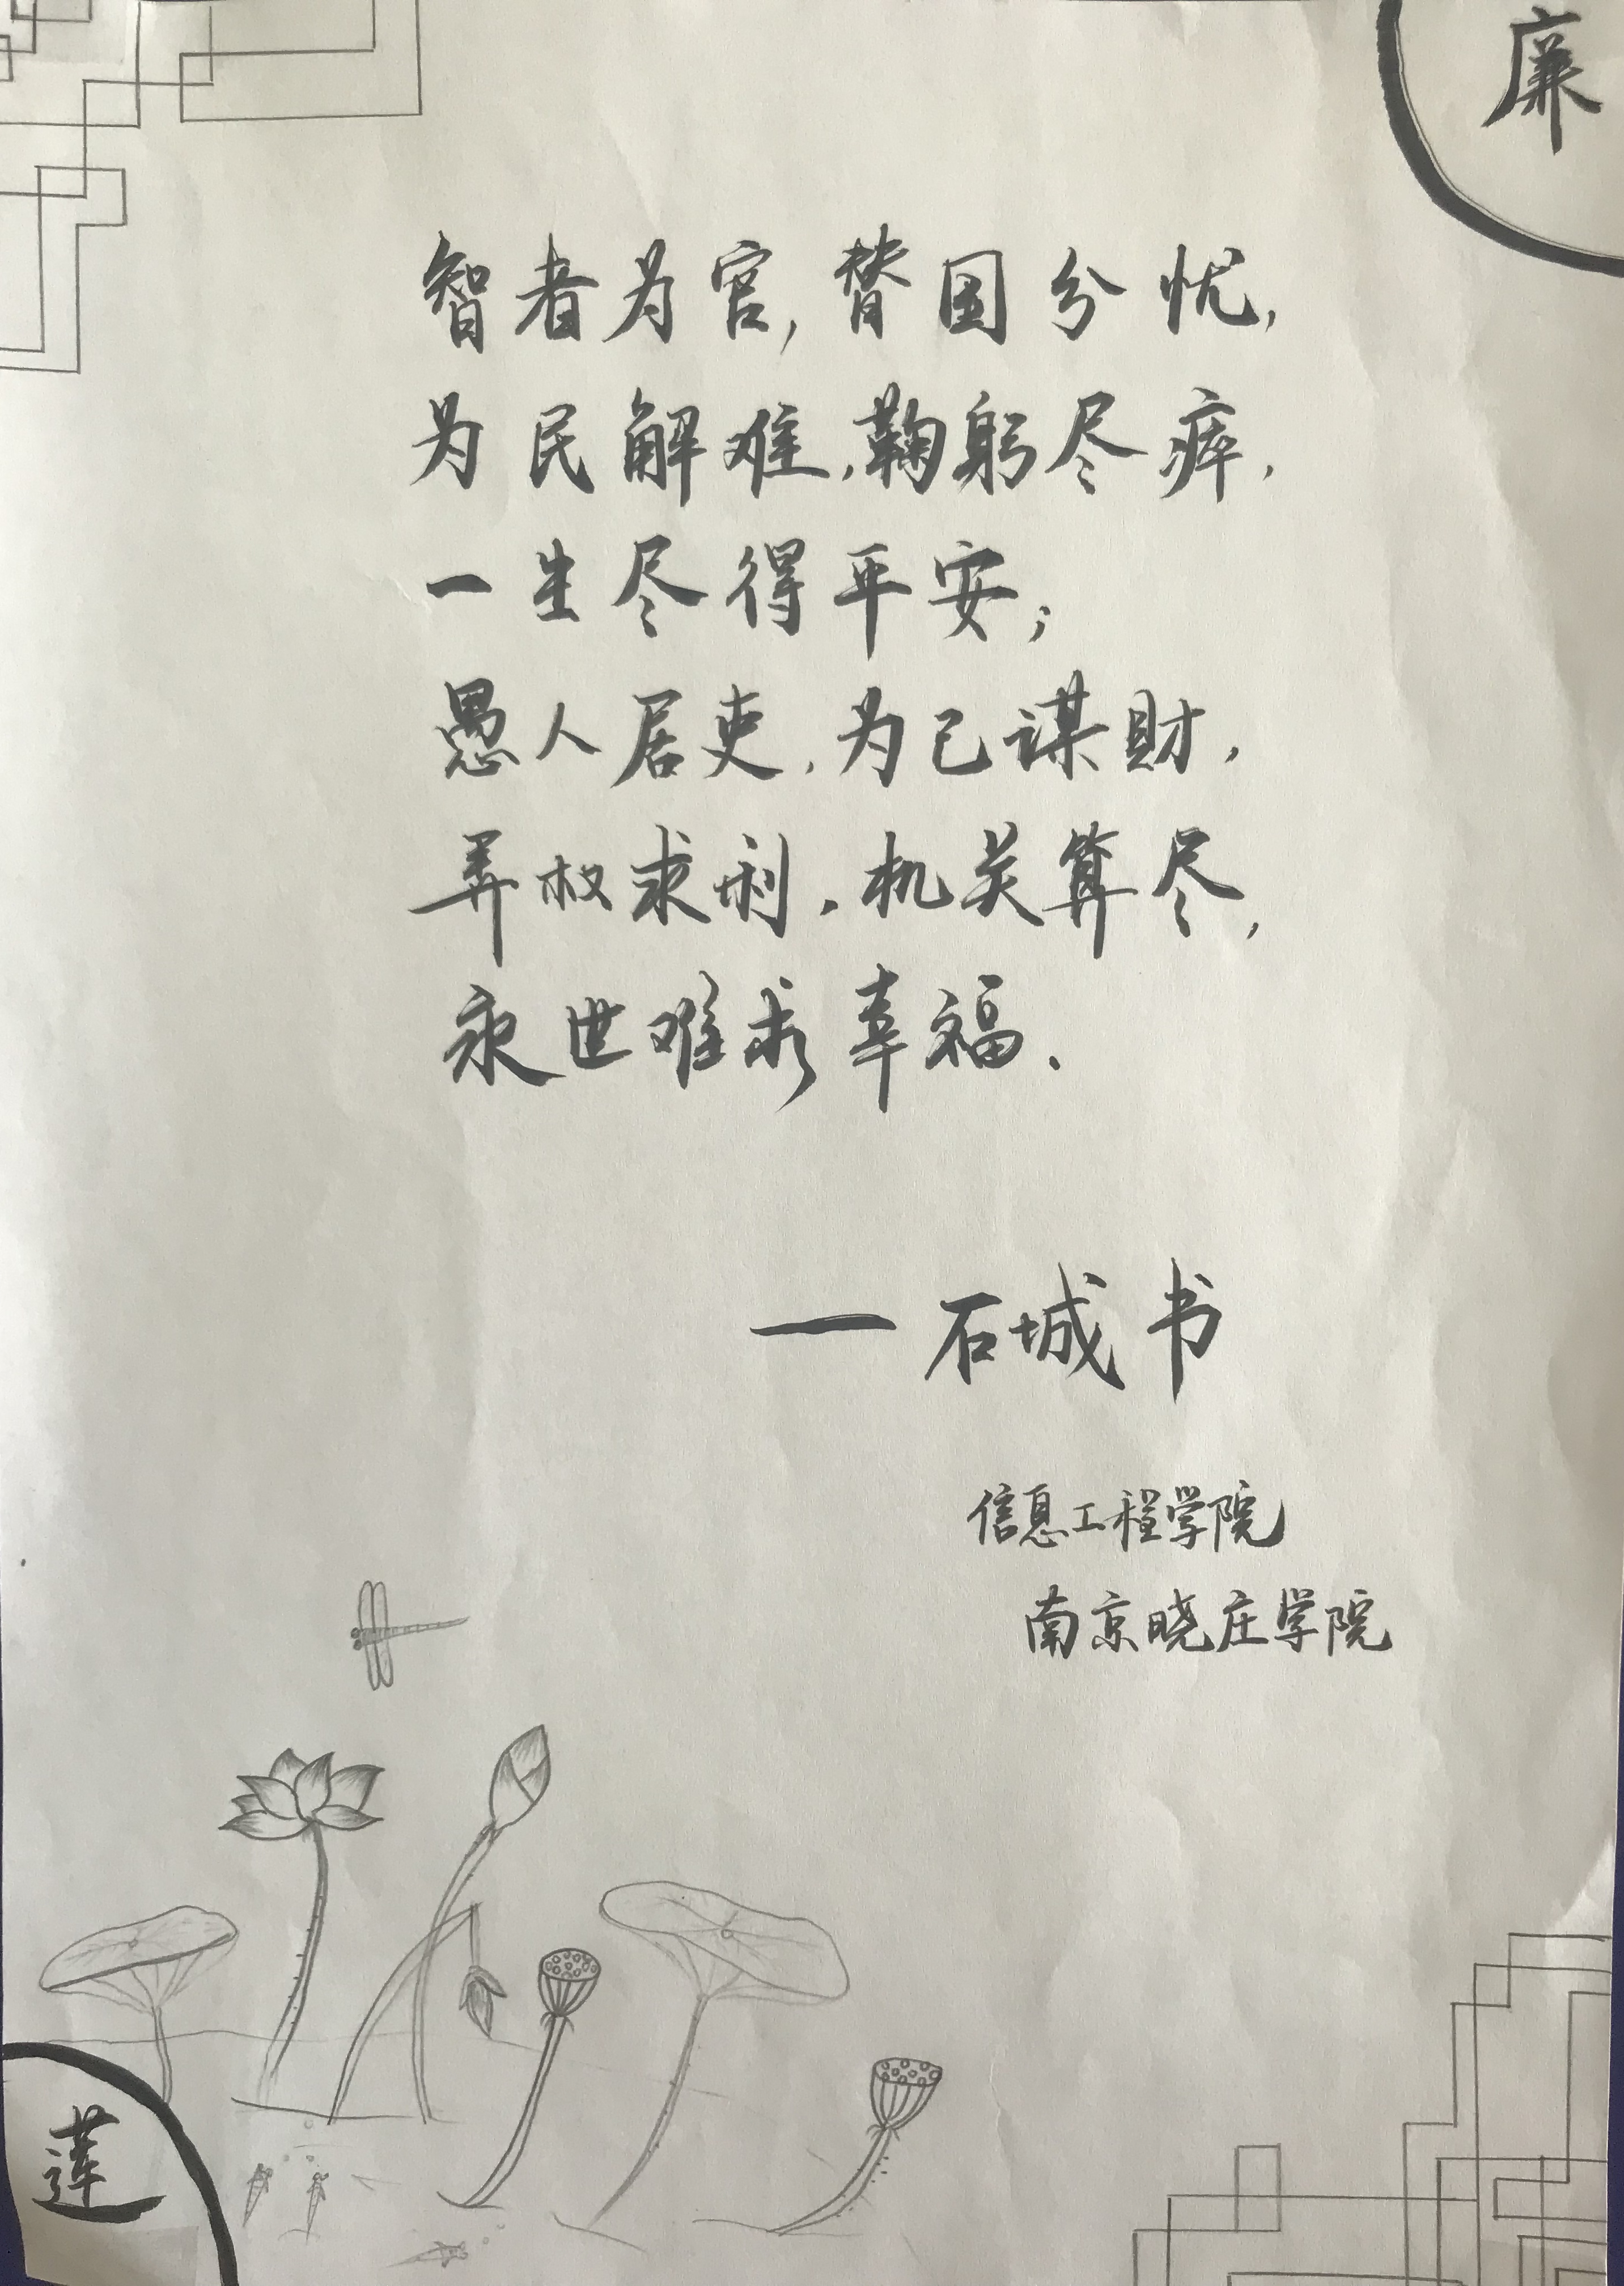 廉
智者为官,替国分忧,
为民解难,鞠躬尽瘁,
一生尽得平安;
愚人居吏,为己谋财,
弄权求利,机关算尽,
永世难求幸福.
一石城书
信息工程学院
南京晓庄学院
莲